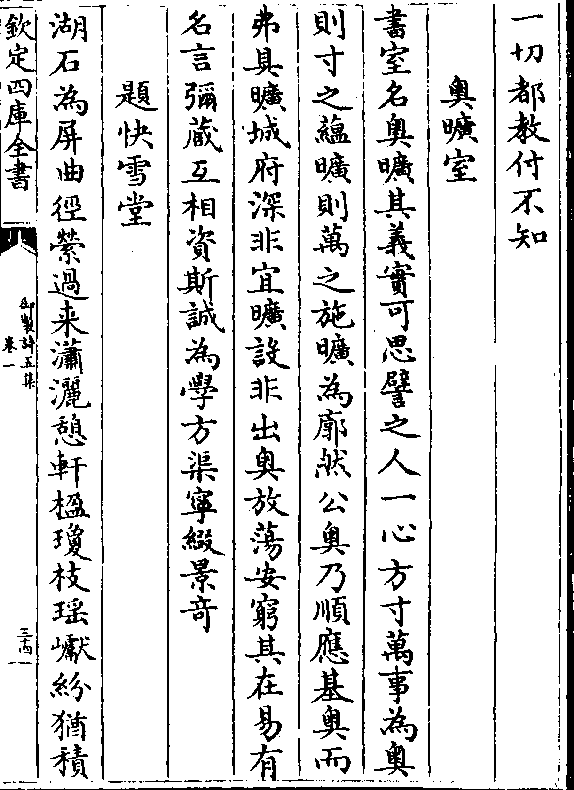 一切都教付不知
奥曠室
書室名奥曠其義實可思譬之人一心方寸萬事為奥
則寸之藴曠則萬之施曠為廓然公奥乃順應基奥而
弗具曠城府深非宜曠設非出奥放蕩安窮其在易有
名言彌藏互相資斯誠為學方渠寧綴景竒
題快雪堂
湖石為屏曲徑縈過来瀟灑憩軒楹瓊枝瑶巘紛猶積
欽定四庫全書
御製詩五集
卷一
三十四